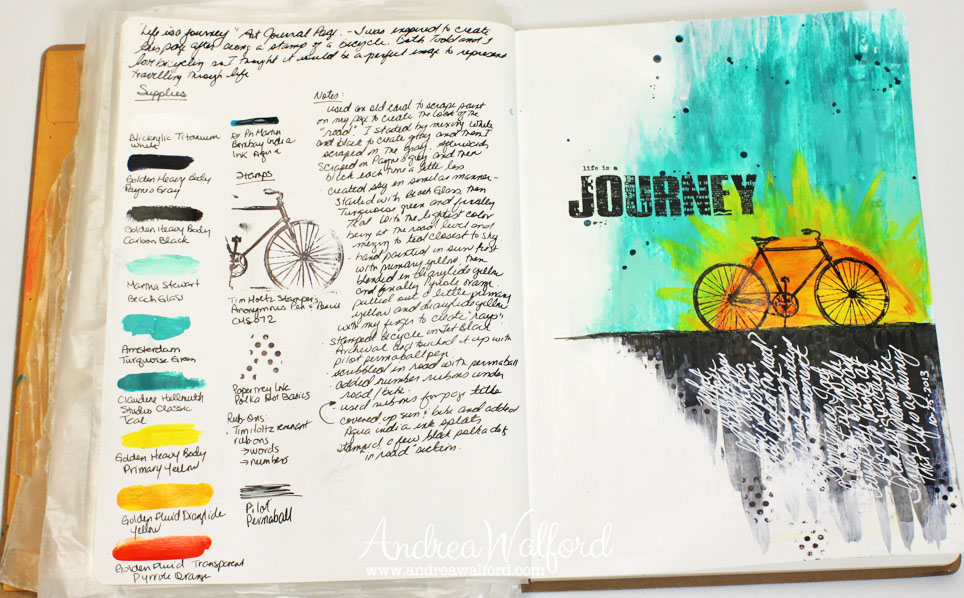 "Life is a Journey" Art Journal Page. - I was inspired to create
this page after seeing a stamp of a bicycle. Both Todd and I
love bicycling so I thought it would be a perfect image to represent
travelling through life
Supplies
Blickrylic Titanium
White
Golden Heavy Body
Paynes Gray
Golden Heavy Body
Carbon Black
Martha Stewart
Beach Glass
Amsterdam
Turquoise Green
Claudine Hellmuth
Studio Classic
Teal
Golden Heavy Body
Primary Yellow
Golden Fluid Diarylide
Yellow
Golden Fluid Transparent
Pyrrole Orange
Dr Ph Martin
Bombay India
Ink Aqua
Stamps
Tim Holtz Stampers
Anonymous
CMS072
Papertrey Ink
Polka Dot Basics
Rub-Ons:
Tim Holtz remnant
rubons
→ words
→ numbers
Pilot
Permaball
Notes:
used an old card to scrape paint
on my page to create the look of the
"road". I started by mixing white
and black to create gray and then I
scraped on the gray, afterwards
scraped on Paynes grey and then
black each time a little less
- created sky in similar manner -
started with Beach Glass then
Turquoise green and finally
Teal with the lightest color
being at the road level and
moving to teal closest to sky
- hand painted in sun first
with primary yellow, then
blended in diarylide yellow
and finally pyrrole orange.
pulled out a little primary
yellow and diarylide yellow
with my finger to create "rays".
- stamped bicycle in Jet Black
Archival and touched it up with
pilot permaball pen
- scribbled in road with permaball
- added number rubons under
road/bike.
- used rubons for page title
covered up sun & bike and added
Aqua india ink splats
stamped a few black polka dots
in "road" section.
life is a
JOURNEY
only
10.22.2013
Andrea Walford
www.andreawalford.com